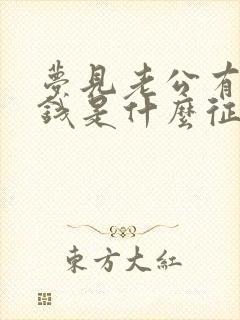 夢見老公有
錢是什麼征
東方大紅